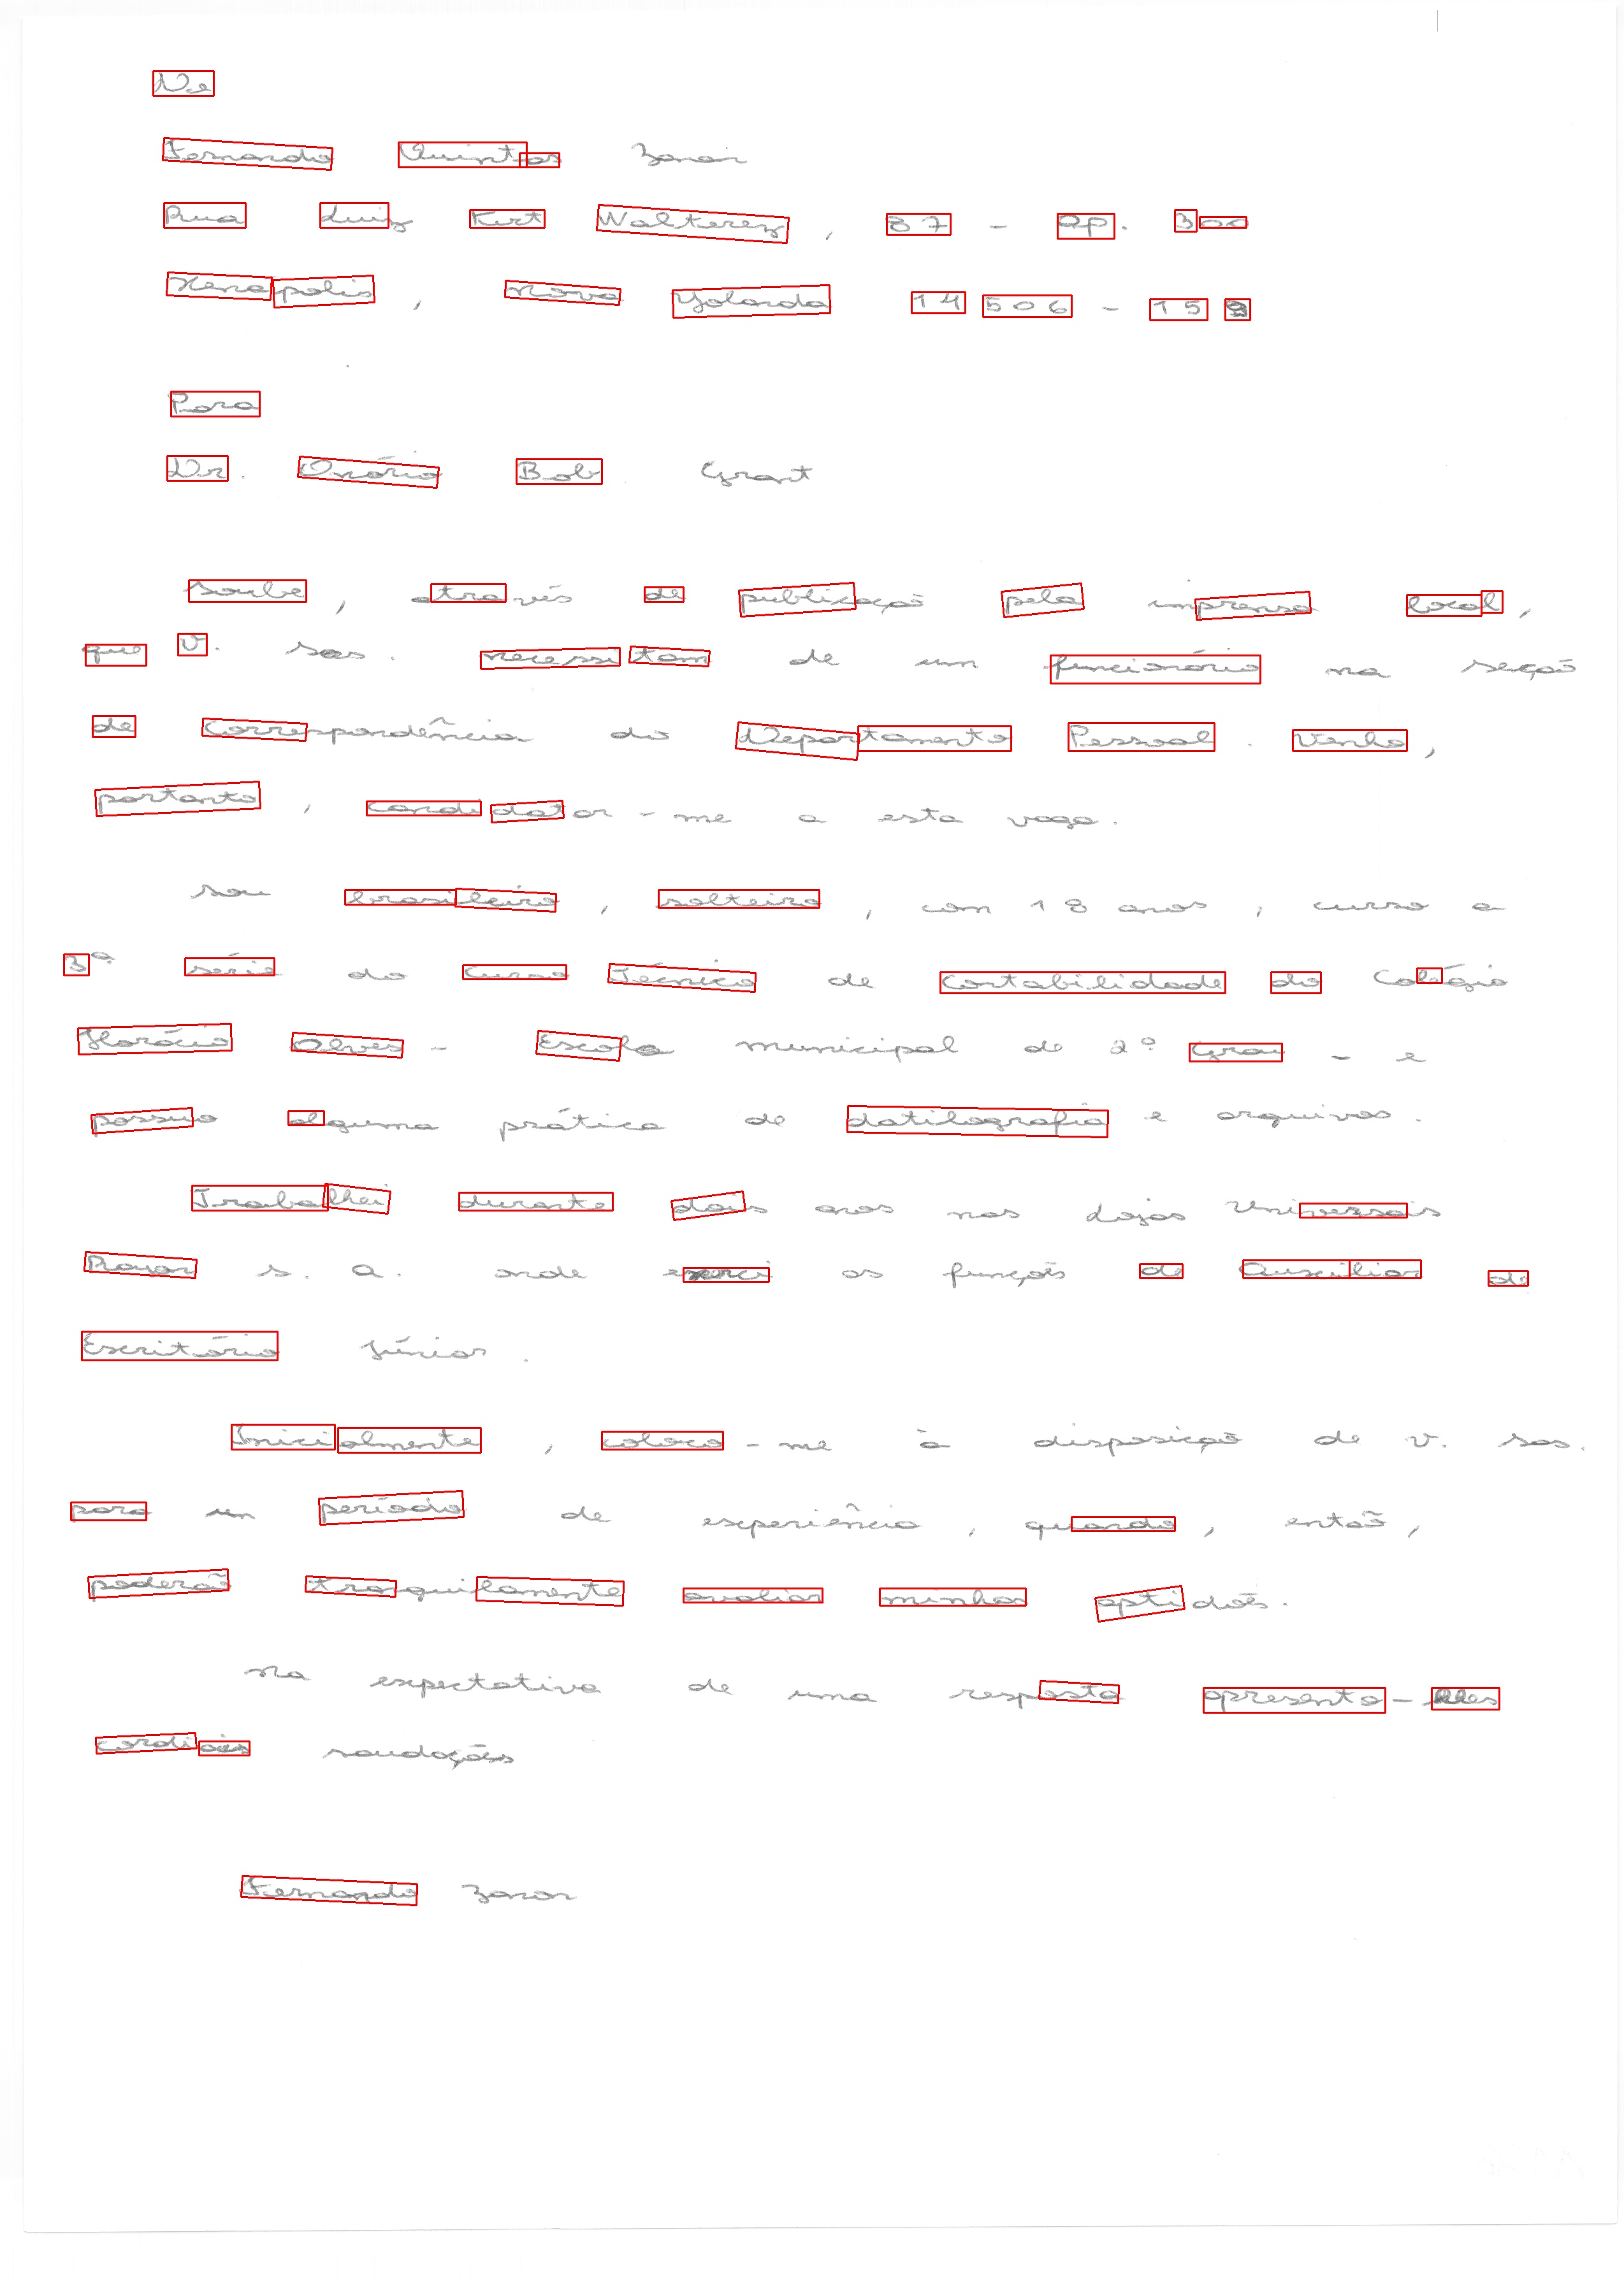 De
Fernando Quintas Zanon
Rua Luiz Kurt Walterez, 87 - Ap. 300
Xenapolis, Nova Yolanda 14506-159
Para
Dr. Onório Bob Grant
Soube, através de publicação pela imprensa local,
que V. Sas. necessitam de um funcionário na seção
de Correspondência do Departamento Pessoal. Venho,
portanto, candidatar-me a esta vaga.
Sou brasileiro, solteiro, com 18 anos, curso a
3ª série do Curso Técnico de Contabilidade do Colégio
Horácio Alves - Escola municipal de 2º Grau - e
possuo alguma prática de datilografia e arquivos.
Trabalhei durante dois anos nas Lojas Universais
S. A. onde exerci as funções de Auxiliar de
Escritório Júnior.
Inicialmente, coloco-me à disposição de V. Sas.
para um período de experiência, quando, então,
poderão tranquilamente avaliar minhas aptidões.
Na expectativa de uma resposta apresento-lhes
cordiais saudações
Fernando Zanon